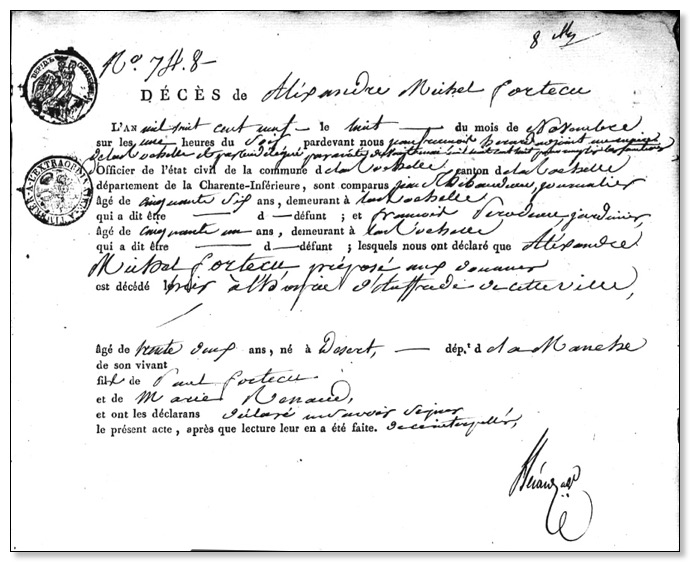 8 
No. 748-
DÉCÈS de Aléxandre Michel fortecu
L'AN mil huit cent neuf — le huit — du mois de Novembre
sur les une heures du Soir, pardevant nous jean francois adjoint
de la Rochelle
Officier de l'état civil de la commune de la Rochelle canton de la Rochelle
département de la Charente-Inférieure, sont comparus jean Thibaudeau, journalier
âgé de cinquante Six ans, demeurant à la Rochelle
qui a dit être — d — défunt ; et francois jardinier
âgé de cinquante un ans, demeurant à la Rochelle
qui a dit être — d — défunt ; lesquels nous ont déclaré que Aléxandre
Michel fortecu, préposé aux douanes
est décédé hier à l'hospice d'auffrédi de cette ville,
âgé de trente deux ans, né à Desert, — dép.t de la Manche
de son vivant
fils de Paul fortecu
et de Marie Renaud,
et ont les déclarans déclaré ne Savoir Signer
le présent acte, après que lecture leur en a été faite. de ce interpellés,